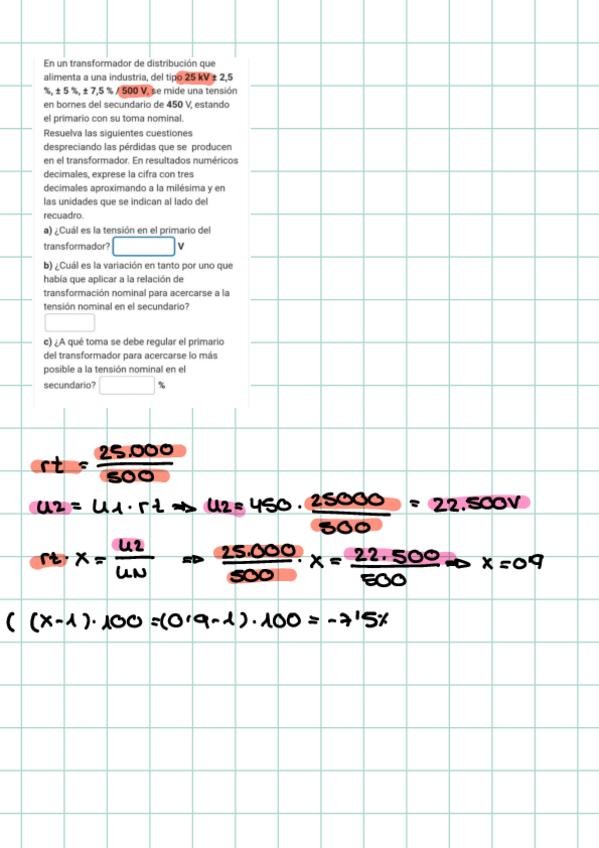 En un transformador de distribución que
alimenta a una industria, del tipo 25 kV ± 2,5
%, ± 5 %, ± 7,5 % / 500 V, se mide una tensión
en bornes del secundario de 450 V, estando
el primario con su toma nominal.
Resuelva las siguientes cuestiones
despreciando las pérdidas que se producen
en el transformador. En resultados numéricos
decimales, exprese la cifra con tres
decimales aproximando a la milésima y en
las unidades que se indican al lado del
recuadro.
a) ¿Cuál es la tensión en el primario del
transformador? V
b) ¿Cuál es la variación en tanto por uno que
había que aplicar a la relación de
transformación nominal para acercarse a la
tensión nominal en el secundario?
c) ¿A qué toma se debe regular el primario
del transformador para acercarse lo más
posible a la tensión nominal en el
secundario? %
rt = 25.000 / 500
u2 = u1 · rt => u2 = 450 · 25000 / 500 = 22.500V
rt · x = u2 / uN => 25.000 / 500 · x = 22.500 / 500 => x = 09
( (x-1) · 100 = (0'9-1) · 100 = -7'5%